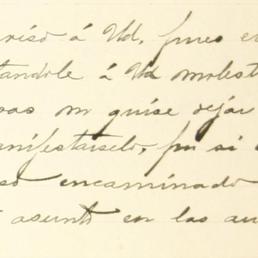 aviso á Vd, pues e
tandole á Vd molest
ras no quise dejar
anifestarselo, por si
so encaminado
asunto en las au